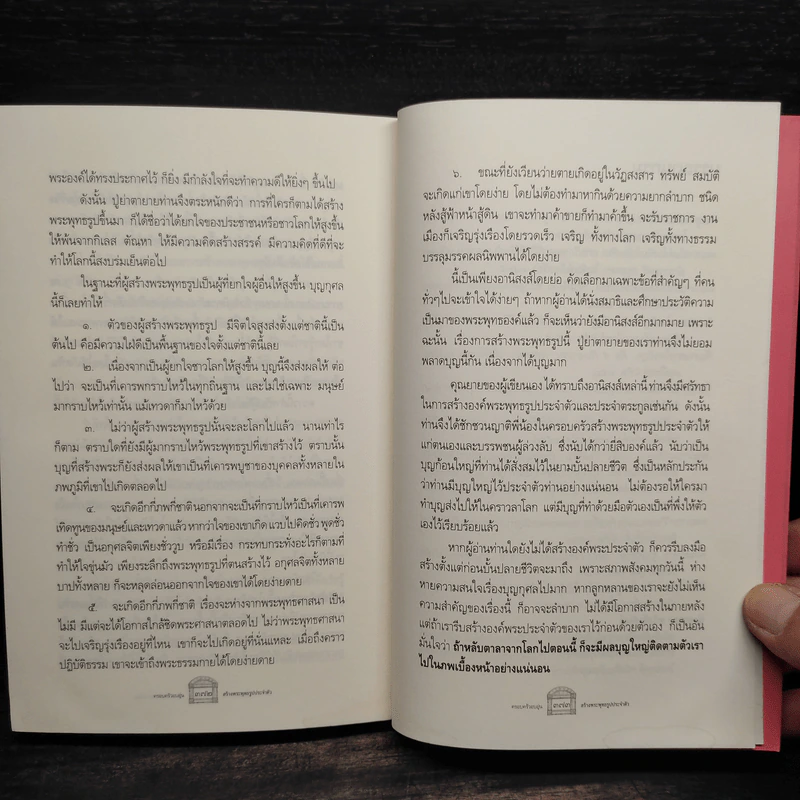 พระองค์ได้ทรงประกาศไว้ ก็ยิ่ง มีกำลังใจที่จะทำความดีให้ยิ่งๆ ขึ้นไป
ดังนั้น ปู่ย่าตายายท่านจึงตระหนักดีว่า การที่ใครก็ตามได้สร้าง
พระพุทธรูปขึ้นมา ก็ได้ชื่อว่าได้ยกใจของประชาชนหรือชาวโลกให้สูงขึ้น
ให้พ้นจากกิเลส ตัณหา ให้มีความคิดสร้างสรรค์ มีความคิดที่ดีที่จะ
ทำให้โลกนี้สงบร่มเย็นต่อไป
ในฐานะที่ผู้สร้างพระพุทธรูปเป็นผู้ที่ยกใจผู้อื่นให้สูงขึ้น บุญกุศล
นี้ก็เลยทำให้
๑. ตัวของผู้สร้างพระพุทธรูป มีจิตใจสูงส่งตั้งแต่ชาตินี้เป็น
ต้นไป คือมีความใฝ่ดีเป็นพื้นฐานของใจตั้งแต่ชาตินี้เลย
๒. เนื่องจากเป็นผู้ยกใจชาวโลกให้สูงขึ้น บุญนี้จึงส่งผลให้ ต่อ
ไปว่า จะเป็นที่เคารพกราบไหว้ในทุกถิ่นฐาน และไม่ใช่เฉพาะ มนุษย์
มากราบไหว้เท่านั้น แม้เทวดาก็มาไหว้ด้วย
๓. ไม่ว่าผู้สร้างพระพุทธรูปนั้นจะละโลกไปแล้ว นานเท่าไร
ก็ตาม ตราบใดที่ยังมีผู้มากราบไหว้พระพุทธรูปที่เขาสร้างไว้ ตราบนั้น
บุญที่สร้างพระก็ยังส่งผลให้เขาเป็นที่เคารพบูชาของบุคคลทั้งหลายใน
ภพภูมิที่เขาไปเกิดตลอดไป
๔. จะเกิดอีกกี่ภพกี่ชาตินอกจากจะเป็นที่กราบไหว้เป็นที่เคารพ
เทิดทูนของมนุษย์และเทวดาแล้ว หากว่าใจของเขาเกิด แวบไปคิดชั่ว พูดชั่ว
ทำชั่ว เป็นอกุศลจิตเพียงชั่ววูบ หรือมีเรื่อง กระทบกระทั่งอะไรก็ตามที่
ทำให้ใจขุ่นมัว เพียงระลึกถึงพระพุทธรูปที่ตนสร้างไว้ อกุศลจิตทั้งหลาย
บาปทั้งหลาย ก็จะหลุดล่อนออกจากใจของเขาได้โดยง่ายดาย
๕. จะเกิดอีกกี่ภพกี่ชาติ เรื่องจะห่างจากพระพุทธศาสนา เป็น
ไม่มี มีแต่จะได้โอกาสใกล้ชิดพระศาสนาตลอดไป ไม่ว่าพระพุทธศาสนา
จะไปเจริญรุ่งเรืองอยู่ที่ไหน เขาก็จะไปเกิดอยู่ที่นั่นแหละ เมื่อถึงคราว
ปฏิบัติธรรม เขาจะเข้าถึงพระธรรมกายได้โดยง่ายดาย
ครอบครัวอบอุ่น ๓๗๒ สร้างพระพุทธรูปประจำตัว
๖. ขณะที่ยังเวียนว่ายตายเกิดอยู่ในวัฏสงสาร ทรัพย์ สมบัติ
จะเกิดแก่เขาโดยง่าย โดยไม่ต้องทำมาหากินด้วยความยากลำบาก ชนิด
หลังสู้ฟ้าหน้าสู้ดิน เขาจะทำมาค้าขายก็ทำมาค้าขึ้น จะรับราชการ งาน
เมืองก็เจริญรุ่งเรืองโดยรวดเร็ว เจริญ ทั้งทางโลก เจริญทั้งทางธรรม
บรรลุมรรคผลนิพพานได้โดยง่าย
นี้เป็นเพียงอานิสงส์โดยย่อ คัดเลือกมาเฉพาะข้อที่สำคัญๆ ที่คน
ทั่วๆไปจะเข้าใจได้ง่ายๆ ถ้าหากผู้อ่านได้นั่งสมาธิและศึกษาประวัติความ
เป็นมาของพระพุทธองค์แล้ว ก็จะเห็นว่ายังมีอานิสงส์อีกมากมาย เพราะ
ฉะนั้น เรื่องการสร้างพระพุทธรูปนี้ ปู่ย่าตายายของเราท่านจึงไม่ยอม
พลาดบุญนี้กัน เนื่องจากได้บุญมาก
คุณยายของผู้เขียนเอง ได้ทราบถึงอานิสงส์เหล่านี้ ท่านจึงมีศรัทธา
ในการสร้างองค์พระพุทธรูปประจำตัวและประจำตระกูลเช่นกัน ดังนั้น
ท่านจึงได้ชักชวนญาติพี่น้องในครอบครัวสร้างพระพุทธรูปประจำตัวให้
แก่ตนเองและบรรพชนผู้ล่วงลับ ซึ่งนับได้กว่ายี่สิบองค์แล้ว นับว่าเป็น
บุญก้อนใหญ่ที่ท่านได้สั่งสมไว้ในยามบั้นปลายชีวิต ซึ่งเป็นหลักประกัน
ว่าท่านมีบุญใหญ่ไว้ประจำตัวท่านอย่างแน่นอน ไม่ต้องรอให้ใครมา
ทำบุญส่งไปให้ในคราวลาโลก แต่มีบุญที่ทำด้วยมือตัวเองเป็นที่พึ่งให้ตัว
เองไว้เรียบร้อยแล้ว
หากผู้อ่านท่านใดยังไม่ได้สร้างองค์พระประจำตัว ก็ควรรีบลงมือ
สร้างตั้งแต่ก่อนบั้นปลายชีวิตจะมาถึง เพราะสภาพสังคมทุกวันนี้ ห่าง
หายความสนใจเรื่องบุญกุศลไปมาก หากลูกหลานของเราจะยังไม่เห็น
ความสำคัญของเรื่องนี้ ก็อาจจะลำบาก ไม่ได้มีโอกาสสร้างในภายหลัง
แต่ถ้าเรารีบสร้างองค์พระประจำตัวของเราไว้ก่อนด้วยตัวเอง ก็เป็นอัน
มั่นใจว่า ถ้าหลับตาลาจากโลกไปตอนนี้ ก็จะมีผลบุญใหญ่ติดตามตัวเรา
ไปในภพเบื้องหน้าอย่างแน่นอน
ครอบครัวอบอุ่น ๓๗๓ สร้างพระพุทธรูปประจำตัว